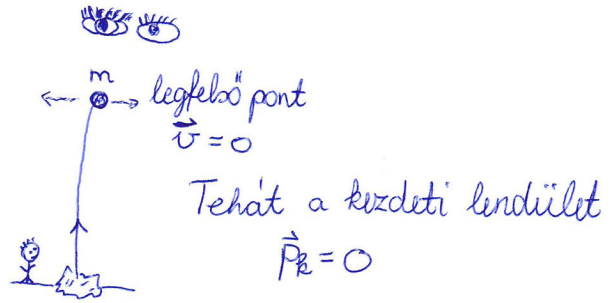 m
legfelső pont
v⃗ = 0
Tehát a kezdeti lendület
p⃗k = 0